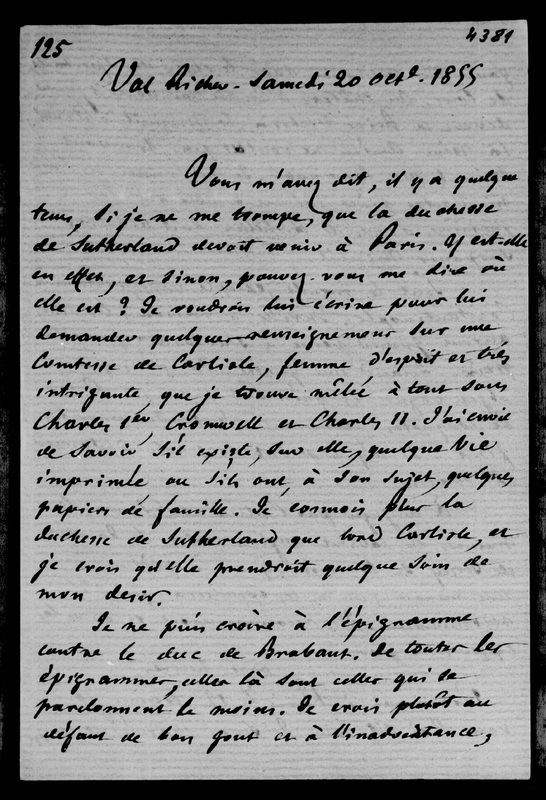 125
4381
Val Richer - Samedi 20 Octe. 1855
Vous m'avez dit, il y a quelque
tems, si je ne me trompe, que la duchesse
de Sutherland devoit venir à Paris. Y est-elle
en effet, et sinon, pouvez-vous me dire où
elle est ? Je voudrois lui écrire pour lui
demander quelques renseignemens sur une
Comtesse de Carlisle, femme d'esprit et très
intrigante, que je trouve mêlée à tout sous
Charles 1er, Cromwell et Charles II. J'ai envie
de savoir s'il existe, sur elle, quelque Vie
imprimée ou s'ils ont, à son sujet, quelques
papiers de famille. Je connois plus la
duchesse de Sutherland que lord Carlisle, et
je crois qu'elle prendroit quelque soin de
mon desir.
Je ne puis croire à l'épigramme
contre le duc de Brabant. De toutes les
épigrammes, celles là sont celles qui se
pardonnent le moins. Je crois plutôt au
défaut de bon gout et à l'inadvertance,